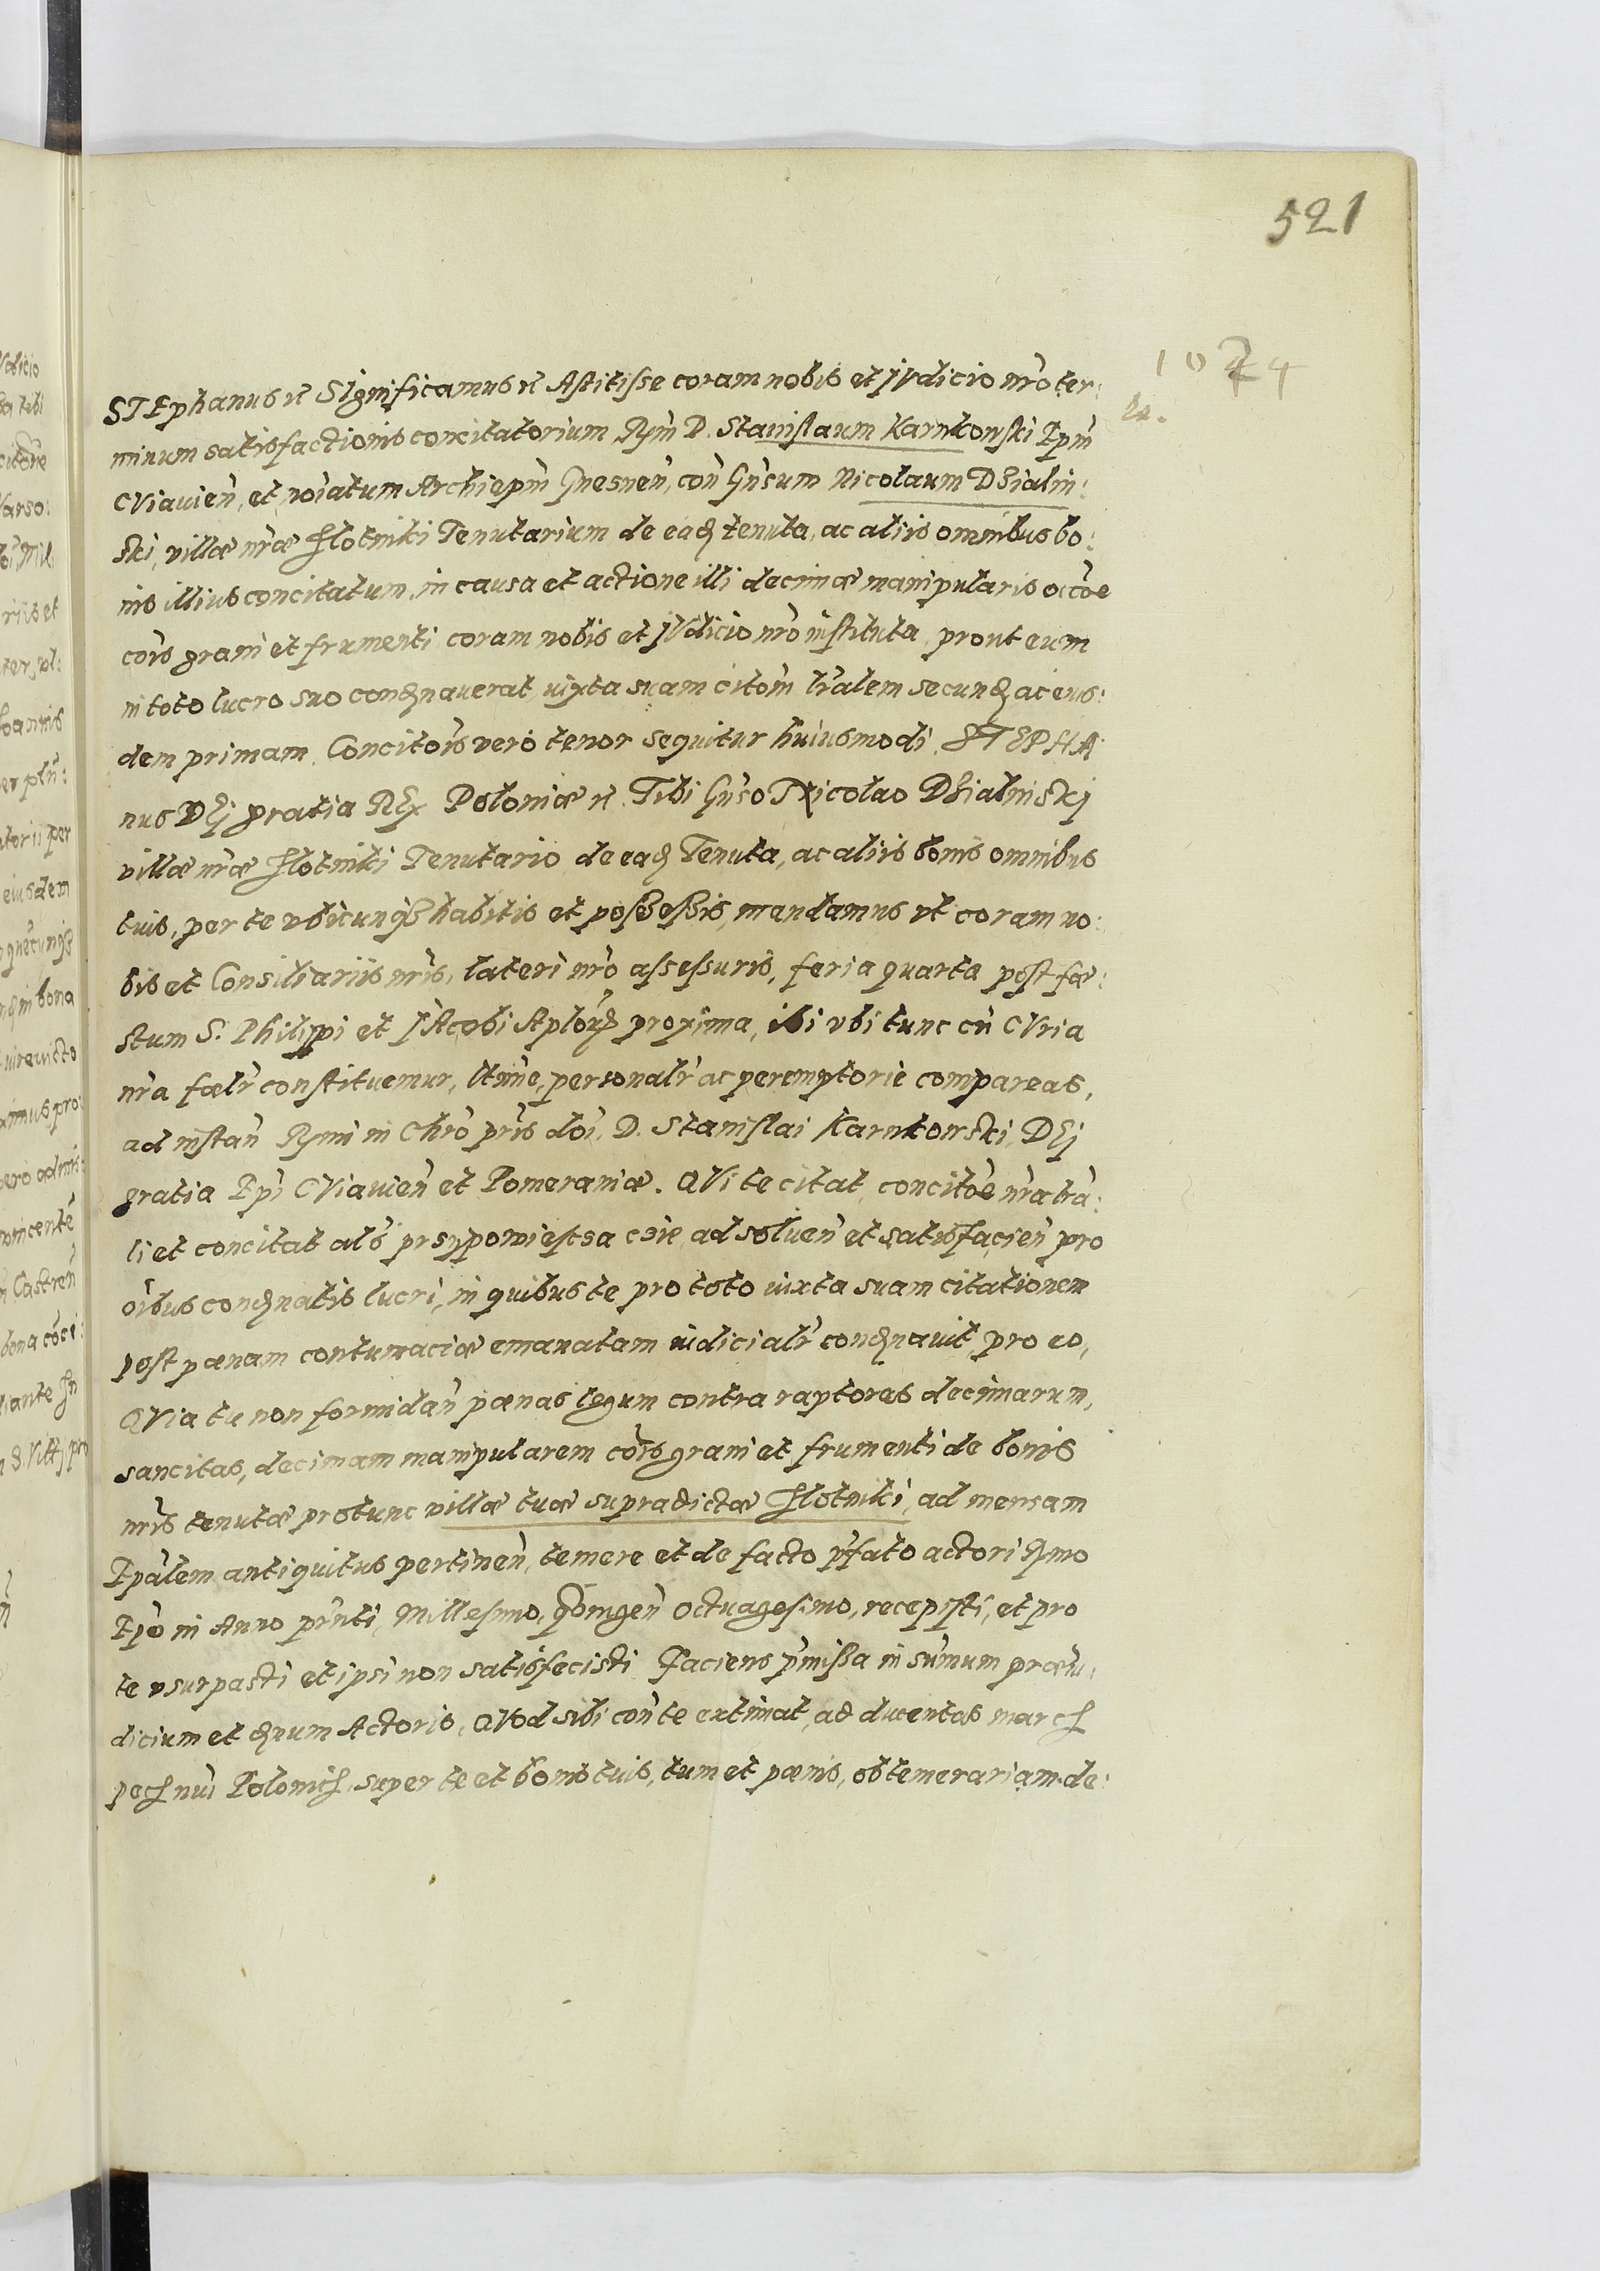 521
1074
STEphanus etc Significamus etc Astitisse coram nobis et JVdicio nr̃o ter:
minum satisfactionis concitatorium Rym̃ D. Stanislaum Karnkonski Epm̃
CViauien̄, et noĩatum Archiepm̃ Gnesnen̄, con̄ Gn̄sum Nicolaum Dzialin:
ski, villæ nr̃æ Slotniki Tenutarium de ead tenuta, ac aliis omnibus bo:
nis illius concitatum, in causa et actione illi decimæ manipularis occõe
cõis grani et frumenti coram nobis et JVdicio nr̃o instituta, prout eum
in toto lucro suo condnauerat, iuxta suam citõm lr̃alem secund ac eius:
dem primam. Concitõis vero tenor sequitur huiusmodi. STEPHA:
nus DEj gratia REx Poloniæ etc. Tibi Gn̄so Nicolao Dzialinskj
villæ nr̃æ Slotniki Tenutario de ead Tenuta, ac aliis bonis omnibus
tuis, per te vbicunqʒ habitis et possessis, mandamus vt coram no:
bis et Consiliariis nr̃is, lateri nr̃o assessuris, feria quarta post fæ:
stum S. Philippi et JAcobi Aplor̃ proxima, ibi vbi tunc cũ CVria
nr̃a fœlr̃ constituemur, ltim̃e, personalr̃ ac peremptorie compareas,
ad instan̄ Rymi in Chr̃o pr̃is dõi, D. Stanislai Karnkowski, DEj
gratia Epĩ CViauien̄ et Pomeraniæ. QVi te citat, concitõe nr̃a lr̃a:
li et concitat als̃ przypowiescza czie ad soluen̄ et satisfacien̄ pro
oĩbus condnatis lucri, in quibus te pro toto iuxta suam citationem
post pœnam contumaciæ emanatam iudicialr̃ condnauit, pro eo,
QVia tu non formidan̄ pœnas legum contra raptores decimarum,
sancitas, decimam manipularem cõis grani et frumenti de bonis
nr̃is tenutæ pro tunc villæ tuæ supradictæ Slotniki, ad mensam
Epãlem antiquitus pertinen̄, temere et de facto p̃fato actori Rymo
Epõ in Anno pr̃nti, Millesimo, Qõingen̄ Octuagesimo, recepisti, et pro
te vsurpasti et ipsi non satisfecisti. Faciens p̃missa in sum̃um præiu:
dicium et dnum Actoris, QVod sibi con̄ te extimat, ad ducentas marc
pec nũi Polonic, super te et bonis tuis, tum et pœnis, ob temerariam de: